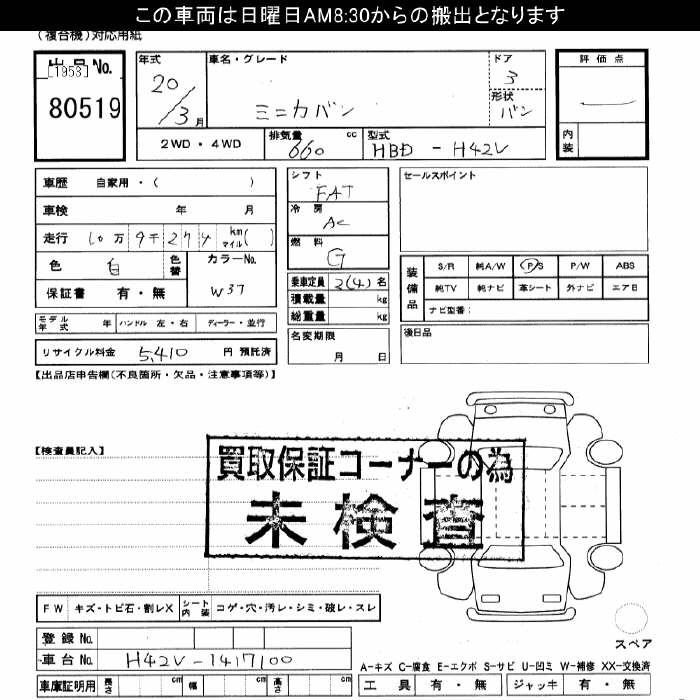 この車両は日曜日AM8:30からの搬出となります
(複合機)対応用紙
出品No.
[1953]
80519
年式
20/3月
車名・グレード
ミニカバン
ドア
3
形状
バン
評価点
内装
2WD・4WD
排気量 660 cc
型式 HBD-H42V
車歴 自家用・( )
車検 年 月
走行 10万9千274 km マイル( )
色 白 色替
カラーNo.
W37
保証書 有・無
シフト
FAT
冷房
AC
燃料
G
乗車定員 2(4)名
積載量 kg
総重量 kg
名変期限
月 日
セールスポイント
装備品
S/R 純A/W P/S P/W ABS
純TV 純ナビ 革シート 外ナビ エアB
ナビ型番:
後日品
モデル年式 年 ハンドル 左・右 ディーラー・並行
リサイクル料金 5,410 円 預託済
【出品店申告欄(不良箇所・欠品・注意事項等)】
【検査員記入】
買取保証コーナーの為
未検査
FW キズ・トビ石・割レX シート内装 コゲ・穴・汚レ・シミ・破レ・スレ
登録No.
車台No. H42V-1417100
車庫証明用 長さ cm 幅 cm 高さ cm
スペア
A-キズ C-腐食 E-エクボ S-サビ U-凹ミ W-補修 XX-交換済
工具 有・無 ジャッキ 有・無